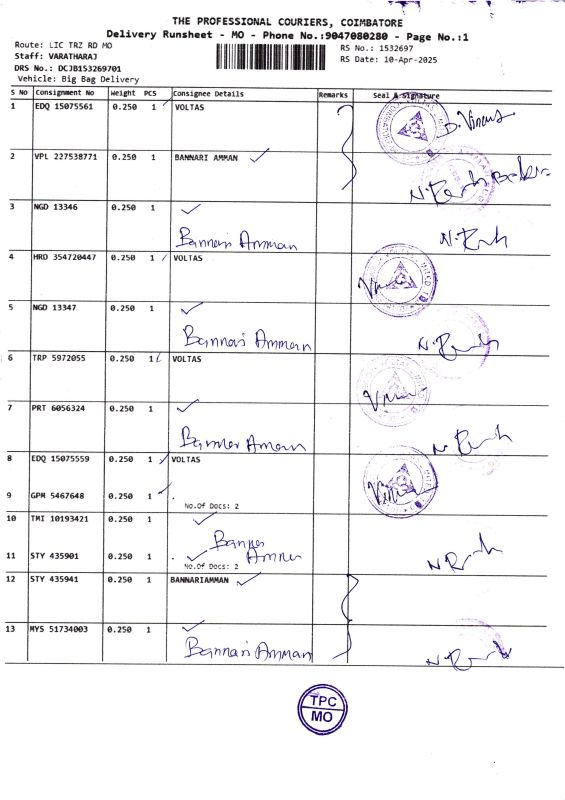 THE PROFESSIONAL COURIERS, COIMBATORE
Delivery Runsheet - MO - Phone No.:9047080280 - Page No.:1
Route: LIC TRZ RD MO
RS No.: 1532697
Staff: VARATHARAJ
RS Date: 10-Apr-2025
DRS No.: DCJB153269701
Vehicle: Big Bag Delivery
S No Consignment No Weight PCS Consignee Details Remarks Seal & Signature
1 EDQ 15075561 0.250 1 VOLTAS
2 VPL 227538771 0.250 1 BANNARI AMMAN
3 NGD 13346 0.250 1
Bannari Amman
4 HRD 354720447 0.250 1 VOLTAS
5 NGD 13347 0.250 1
Bannari Amman
6 TRP 5972055 0.250 1 VOLTAS
7 PRT 6056324 0.250 1
8 EDQ 15075559 0.250 1 VOLTAS
9 GPM 5467648 0.250 1 .
No.Of Docs: 2
10 TMI 10193421 0.250 1
11 STY 435901 0.250 1 .
No.Of Docs: 2
12 STY 435941 0.250 1 BANNARIAMMAN
13 MYS 51734003 0.250 1
Bannari Amman
TPC
MO